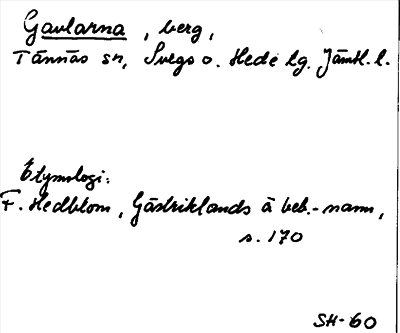 Gavlarna, berg,
Tännäs sn, Svegs o. Hede lg. Jämtl. l.
Etymologi:
F. Hedblom, Gästriklands ä beb.-namn,
s. 170
SH-60